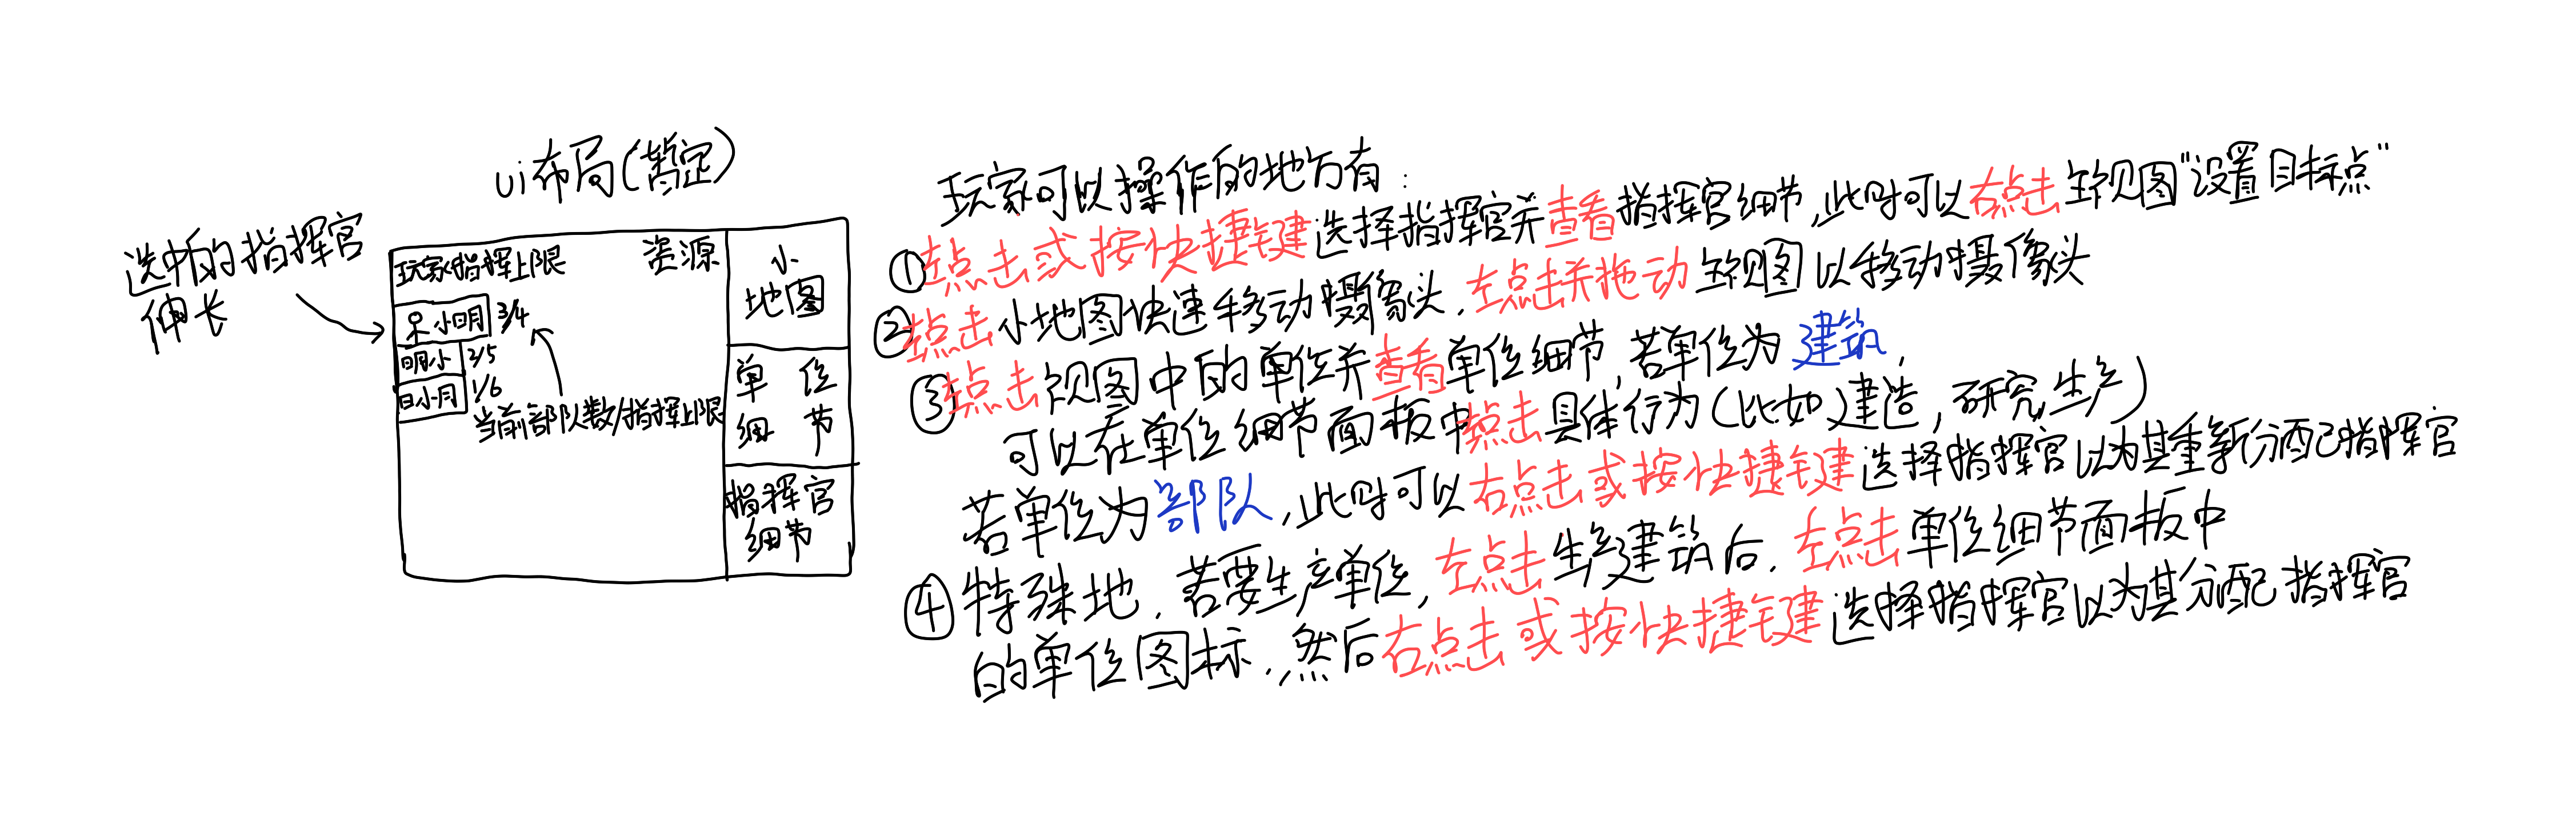 ui布局(暂定)
选中的指挥官
伸长
玩家指挥上限 资源
小
地图
呆小明 3/4
明小 2/5
日小月 1/6
当前部队数/指挥上限
单位
细节
指挥官
细节
玩家可以操作的地方有:
①左点击或按快捷键选择指挥官并查看指挥官细节,此时可以右点击主视图"设置目标点"
②左点击小地图快速移动摄像头,左点击并拖动主视图以移动摄像头
③左点击视图中的单位并查看单位细节,若单位为建筑,
可以在单位细节面板中左点击具体行为(比如建造,研究,生产)
若单位为部队,此时可以右点击或按快捷键选择指挥官以为其重新分配指挥官
④特殊地,若要生产单位,左点击生产建筑后,左点击单位细节面板中
的单位图标,然后右点击或按快捷键选择指挥官以为其分配指挥官